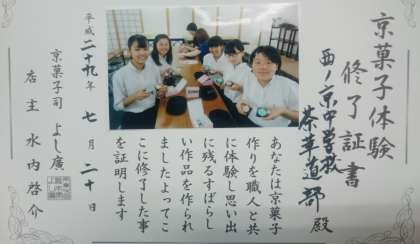 京菓子体験
修了証書
西ノ京中学校
茶華道部 殿
あなたは京菓子
作りを職人と共
に体験し思い出
に残るすばらし
い作品を作られ
ましたよってこ
こに修了した事
を証明します
平成二十九年 七月 二十日
京菓子司 よし廣
店主 水内啓介